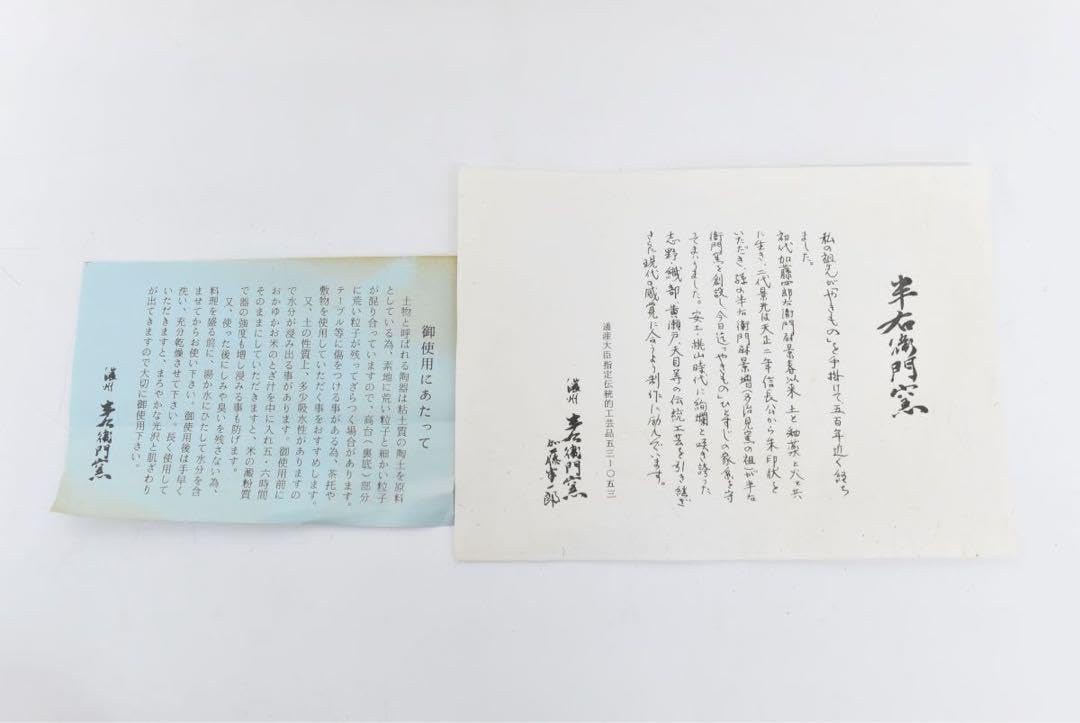 半右衛門窯
私の祖先が「やきもの」を手掛けて五百年近く経ち
ました。
初代加藤四郎右衛門尉景春以来土と釉薬と火と共
に生き、二代景光は天正二年信長公から朱印状を
いただき、孫の半右衛門尉景増(多治見窯の祖)が半右
衛門窯を創設し、今日迄「やきもの」ひとすじの家系を守
ってまいりました。安土・桃山時代に絢爛と咲き誇った
志野・織部・黄瀬戸・天目等の伝統工芸を引き継ぎ
さらに現代の感覚に合うよう制作に励んでいます。
通産大臣指定伝統的工芸品五三ー〇五三
濃州 半右衛門窯
加藤
一郎
御使用にあたって
土物と呼ばれる陶器は粘土質の陶土を原料
としている為、素地に荒い粒子と細かい粒子
が混り合っていますので、高台(裏底)部分
に荒い粒子が残ってざらつく場合があります。
テーブル等に傷をつける事がある為、茶托や
敷物を使用していただく事をおすすめします。
又、土の性質上、多少吸水性がありますの
で水分が浸み出る事があります。御使用前に
おかゆかお米のとぎ汁を中に入れ五・六時間
そのままにしていただきますと、米の澱粉質
で器の強度も増し浸みる事も防げます。
又、使った後にしみや臭いを残さない為、
料理を盛る前に、湯か水にひたして水分を含
ませてからお使い下さい。御使用後は手早く
洗い、充分乾燥させて下さい。長く使用して
いただきますと、まろやかな光沢と肌ざわり
が出てきますので大切に御使用下さい。
濃州 半右衛門窯